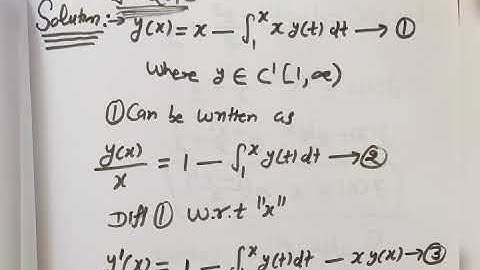 Solution:→ y(x) = x − ∫₁ˣ x y(t) dt → ①
where y ∈ C'[1,∞)
① Can be written as
y(x)/x = 1 − ∫₁ˣ y(t) dt → ②
Diff ① w.r.t "x"
y'(x) = 1 − ∫₁ˣ y(t)dt − x y(x) → ③